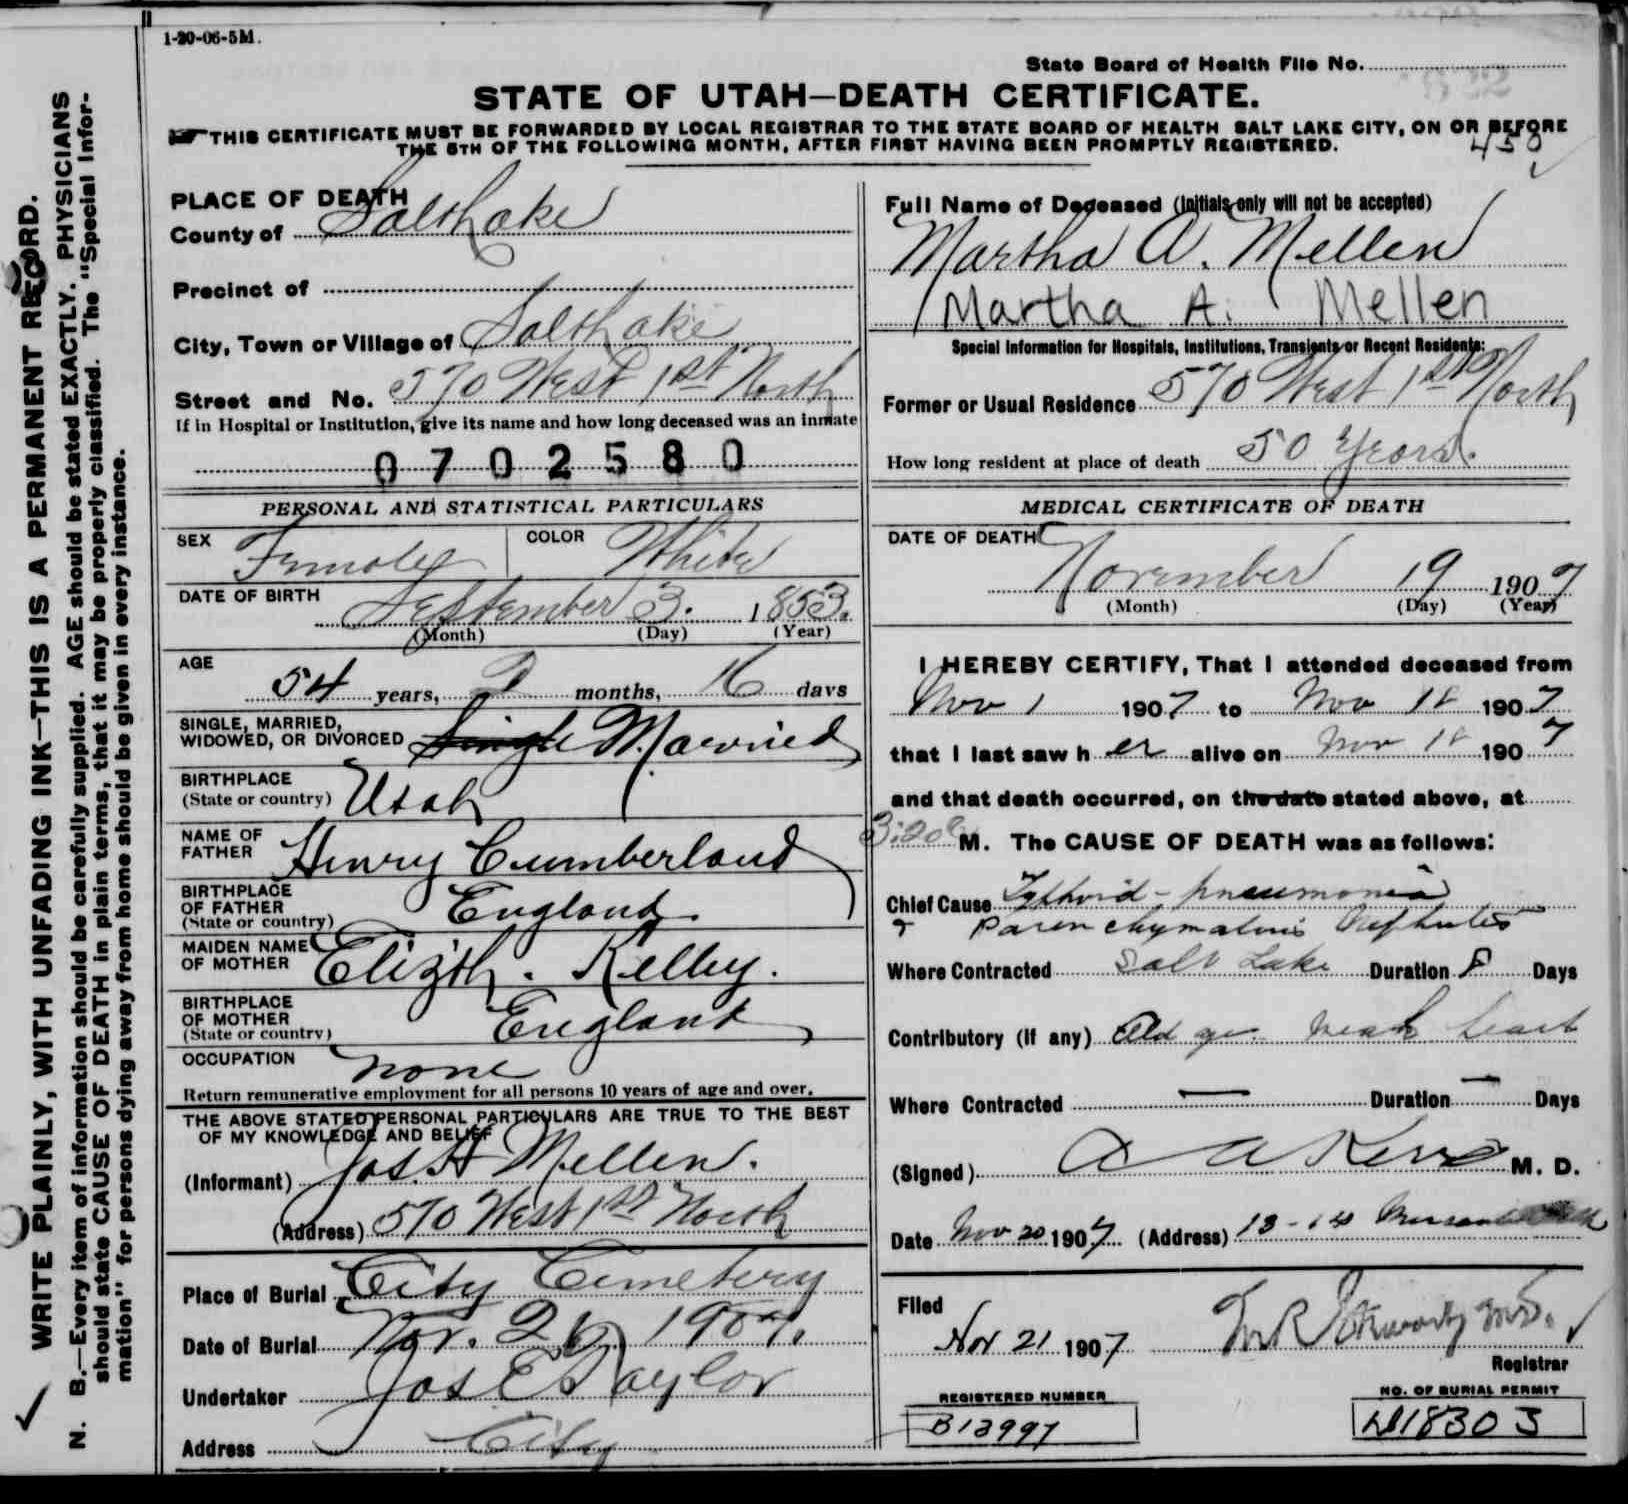 1-20-06-5M.
State Board of Health File No.
STATE OF UTAH—DEATH CERTIFICATE.
THIS CERTIFICATE MUST BE FORWARDED BY LOCAL REGISTRAR TO THE STATE BOARD OF HEALTH SALT LAKE CITY, ON OR BEFORE
THE 5TH OF THE FOLLOWING MONTH, AFTER FIRST HAVING BEEN PROMPTLY REGISTERED.
450
WRITE PLAINLY, WITH UNFADING INK—THIS IS A PERMANENT RECORD.
N. B.—Every item of information should be carefully supplied. AGE should be stated EXACTLY. PHYSICIANS
should state CAUSE OF DEATH in plain terms, that it may be properly classified. The "Special Infor-
mation" for persons dying away from home should be given in every instance.
PLACE OF DEATH
County of Salt Lake
Precinct of
City, Town or Village of Salt Lake
Street and No. 570 West 1st North
If in Hospital or Institution, give its name and how long deceased was an inmate
0702580
PERSONAL AND STATISTICAL PARTICULARS
SEX Female COLOR White
DATE OF BIRTH September 3. 1853.
(Month) (Day) (Year)
AGE 54 years, 2 months, 16 days
SINGLE, MARRIED,
WIDOWED, OR DIVORCED Single Married
BIRTHPLACE
(State or country) Utah
NAME OF
FATHER Henry Cumberland
BIRTHPLACE
OF FATHER
(State or country) England.
MAIDEN NAME
OF MOTHER Elizth. Kelley.
BIRTHPLACE
OF MOTHER
(State or country) England
OCCUPATION none
Return remunerative employment for all persons 10 years of age and over.
THE ABOVE STATED PERSONAL PARTICULARS ARE TRUE TO THE BEST
OF MY KNOWLEDGE AND BELIEF
(Informant) Jos. H Mellen.
(Address) 570 West 1st North
Place of Burial City Cemetery
Date of Burial Nov. 21 1907.
Undertaker Jos E Taylor
Address City
Full Name of Deceased (Initials only will not be accepted)
Martha A. Mellen
Martha A. Mellen
Special Information for Hospitals, Institutions, Transients or Recent Residents:
Former or Usual Residence 570 West 1st North
How long resident at place of death 50 Years.
MEDICAL CERTIFICATE OF DEATH
DATE OF DEATH
November 19 1907
(Month) (Day) (Year)
I HEREBY CERTIFY, That I attended deceased from
Nov 1 1907 to Nov 18 1907
that I last saw her alive on Nov 18 1907
and that death occurred, on the date stated above, at
3:20 M. The CAUSE OF DEATH was as follows:
Chief Cause Typhoid - pneumonia
+ Parenchymatous Nephritis
Where Contracted Salt Lake Duration 8 Days
Contributory (if any) Old age. weak heart
Where Contracted — Duration — Days
(Signed) A A Kerr M. D.
Date Nov 20 1907 (Address) 13-14
Filed
Nov 21 1907
Registrar
REGISTERED NUMBER
B13997
NO. OF BURIAL PERMIT
18303